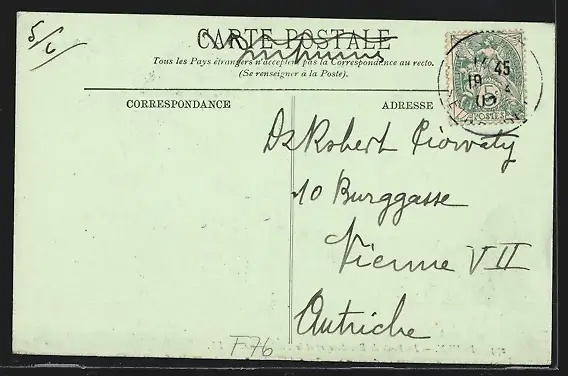 5/c
CARTE POSTALE
Imprimé
Tous les Pays étrangers n'acceptent pas la Correspondance au recto.
(Se renseigner à la Poste).
45
19
POSTES
CORRESPONDANCE
ADRESSE
Dr Robert Piowaty
10 Burggasse
Vienne VII
Autriche
F76